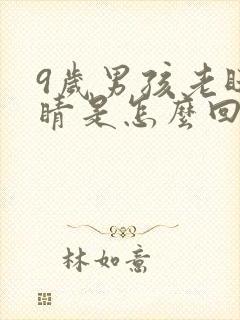 9歲男孩老眨
睛是怎麼回
林如意